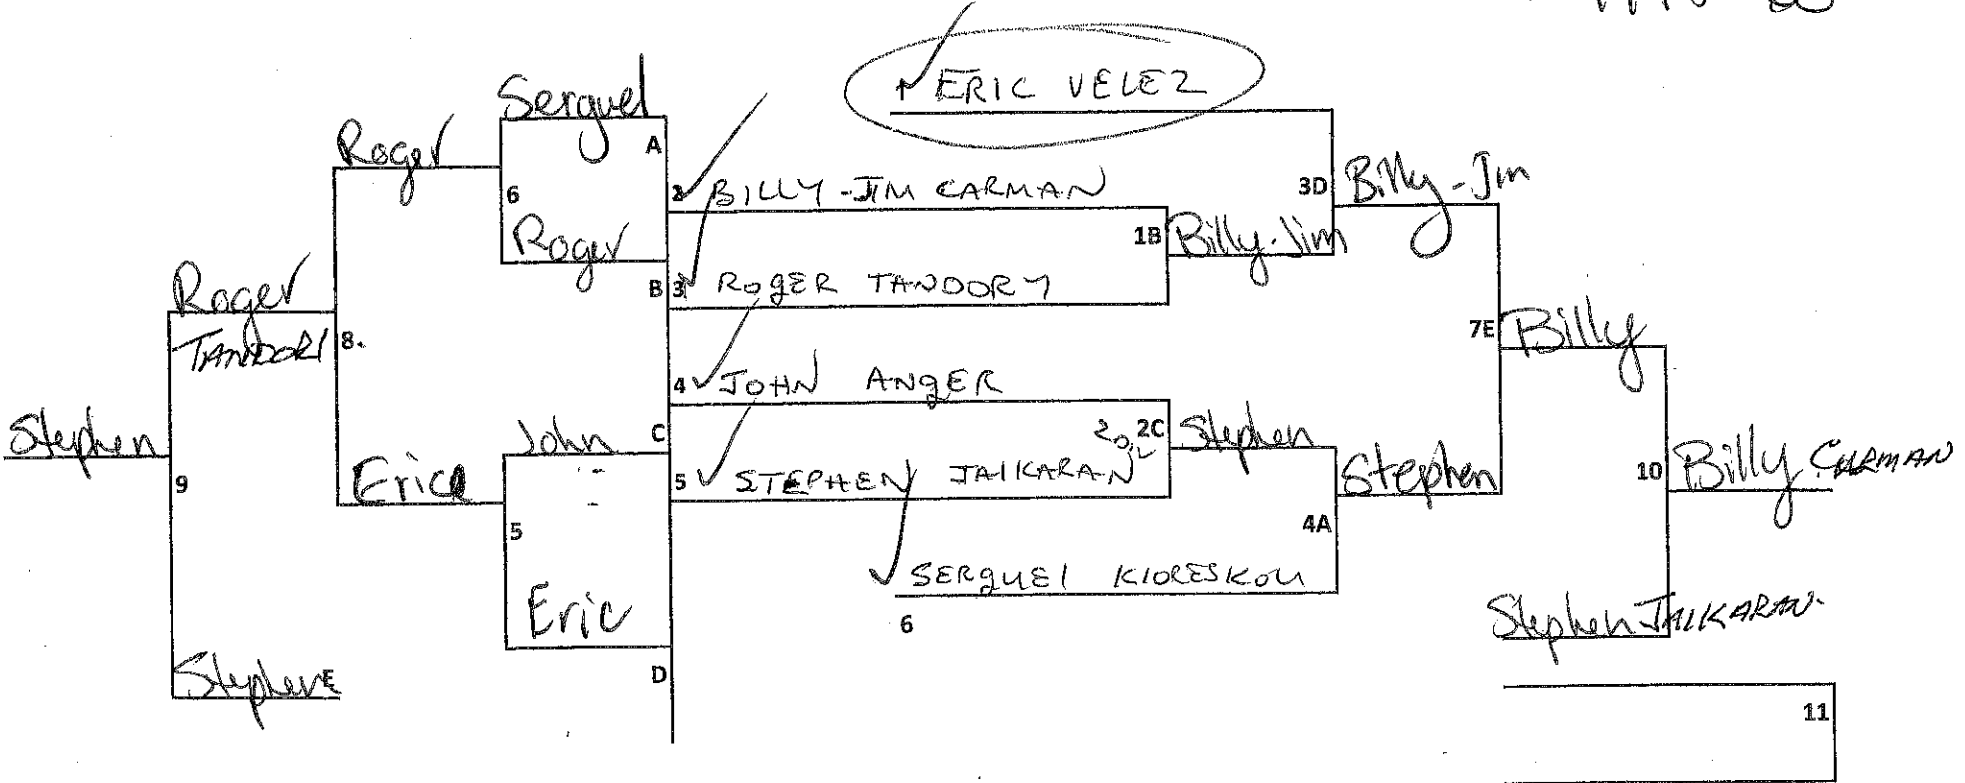 Serguel
ERIC VELEZ
A
Roger
6
2 BILLY-JIM CARMAN
3D
Billy-Jim
Roger
1B
Billy-Jim
B
3 ROGER TANDORY
Roger
TANDORI
8.
7E
Billy
4 JOHN ANGER
Stephen
John
C
2C
Stephen
9
Eric
5 STEPHEN JAIKARAN
Stephen
10
Billy CARMAN
5
4A
Eric
SERGUEI KIORESKOU
6
Stephen JAIKARAN
Stephen
E
D
11